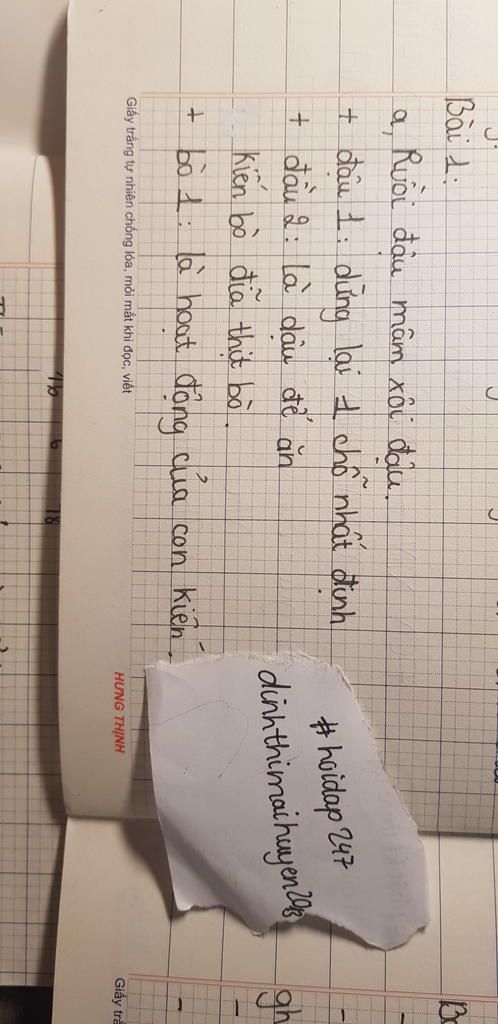 Bài 1:
a, Ruồi đậu mâm xôi đậu.
+ đậu 1: dừng lại 1 chỗ nhất định
+ đậu 2: là đậu để ăn
kiến bò đĩa thịt bò.
+ bò 1: là hoạt động của con kiến.
Giấy trắng tự nhiên chống lóa, mỏi mắt khi đọc, viết
HƯNG THỊNH
#hoidap247
dinhthimaihuyen2013